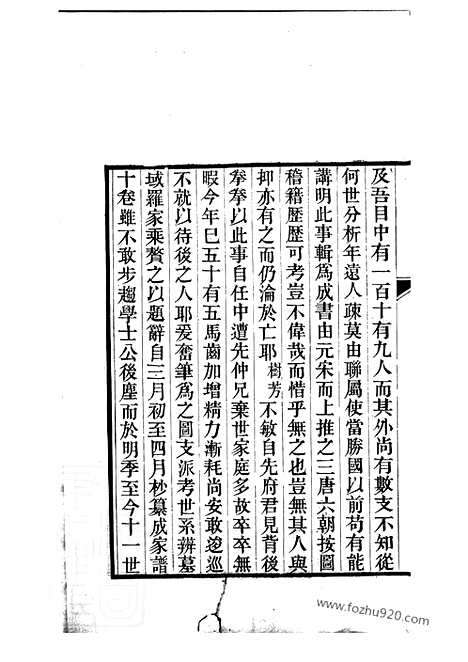 及吾目中有一百十有九人而其外尚有數支不知從
何世分析年遠人疎莫由聯屬使當勝國以前苟有能
講明此事輯爲成書由元宋而上推之三唐六朝按圖
稽籍歷歷可考豈不偉哉而惜乎無之也豈無其人與
抑亦有之而仍淪於亡耶樹芳不敏自先府君見背後
拳拳以此事自任中遭先仲兄棄世家庭多故卒卒無
暇今年巳五十有五馬齒加增精力漸耗尚安敢逡巡
不就以待後之人耶爰奮筆爲之圖支派考世系辨墓
域羅家乘贅之以題辭自三月初至四月杪纂成家譜
十卷雖不敢步趨學士公後塵而於明季至今十一世
www.fozhu920.com